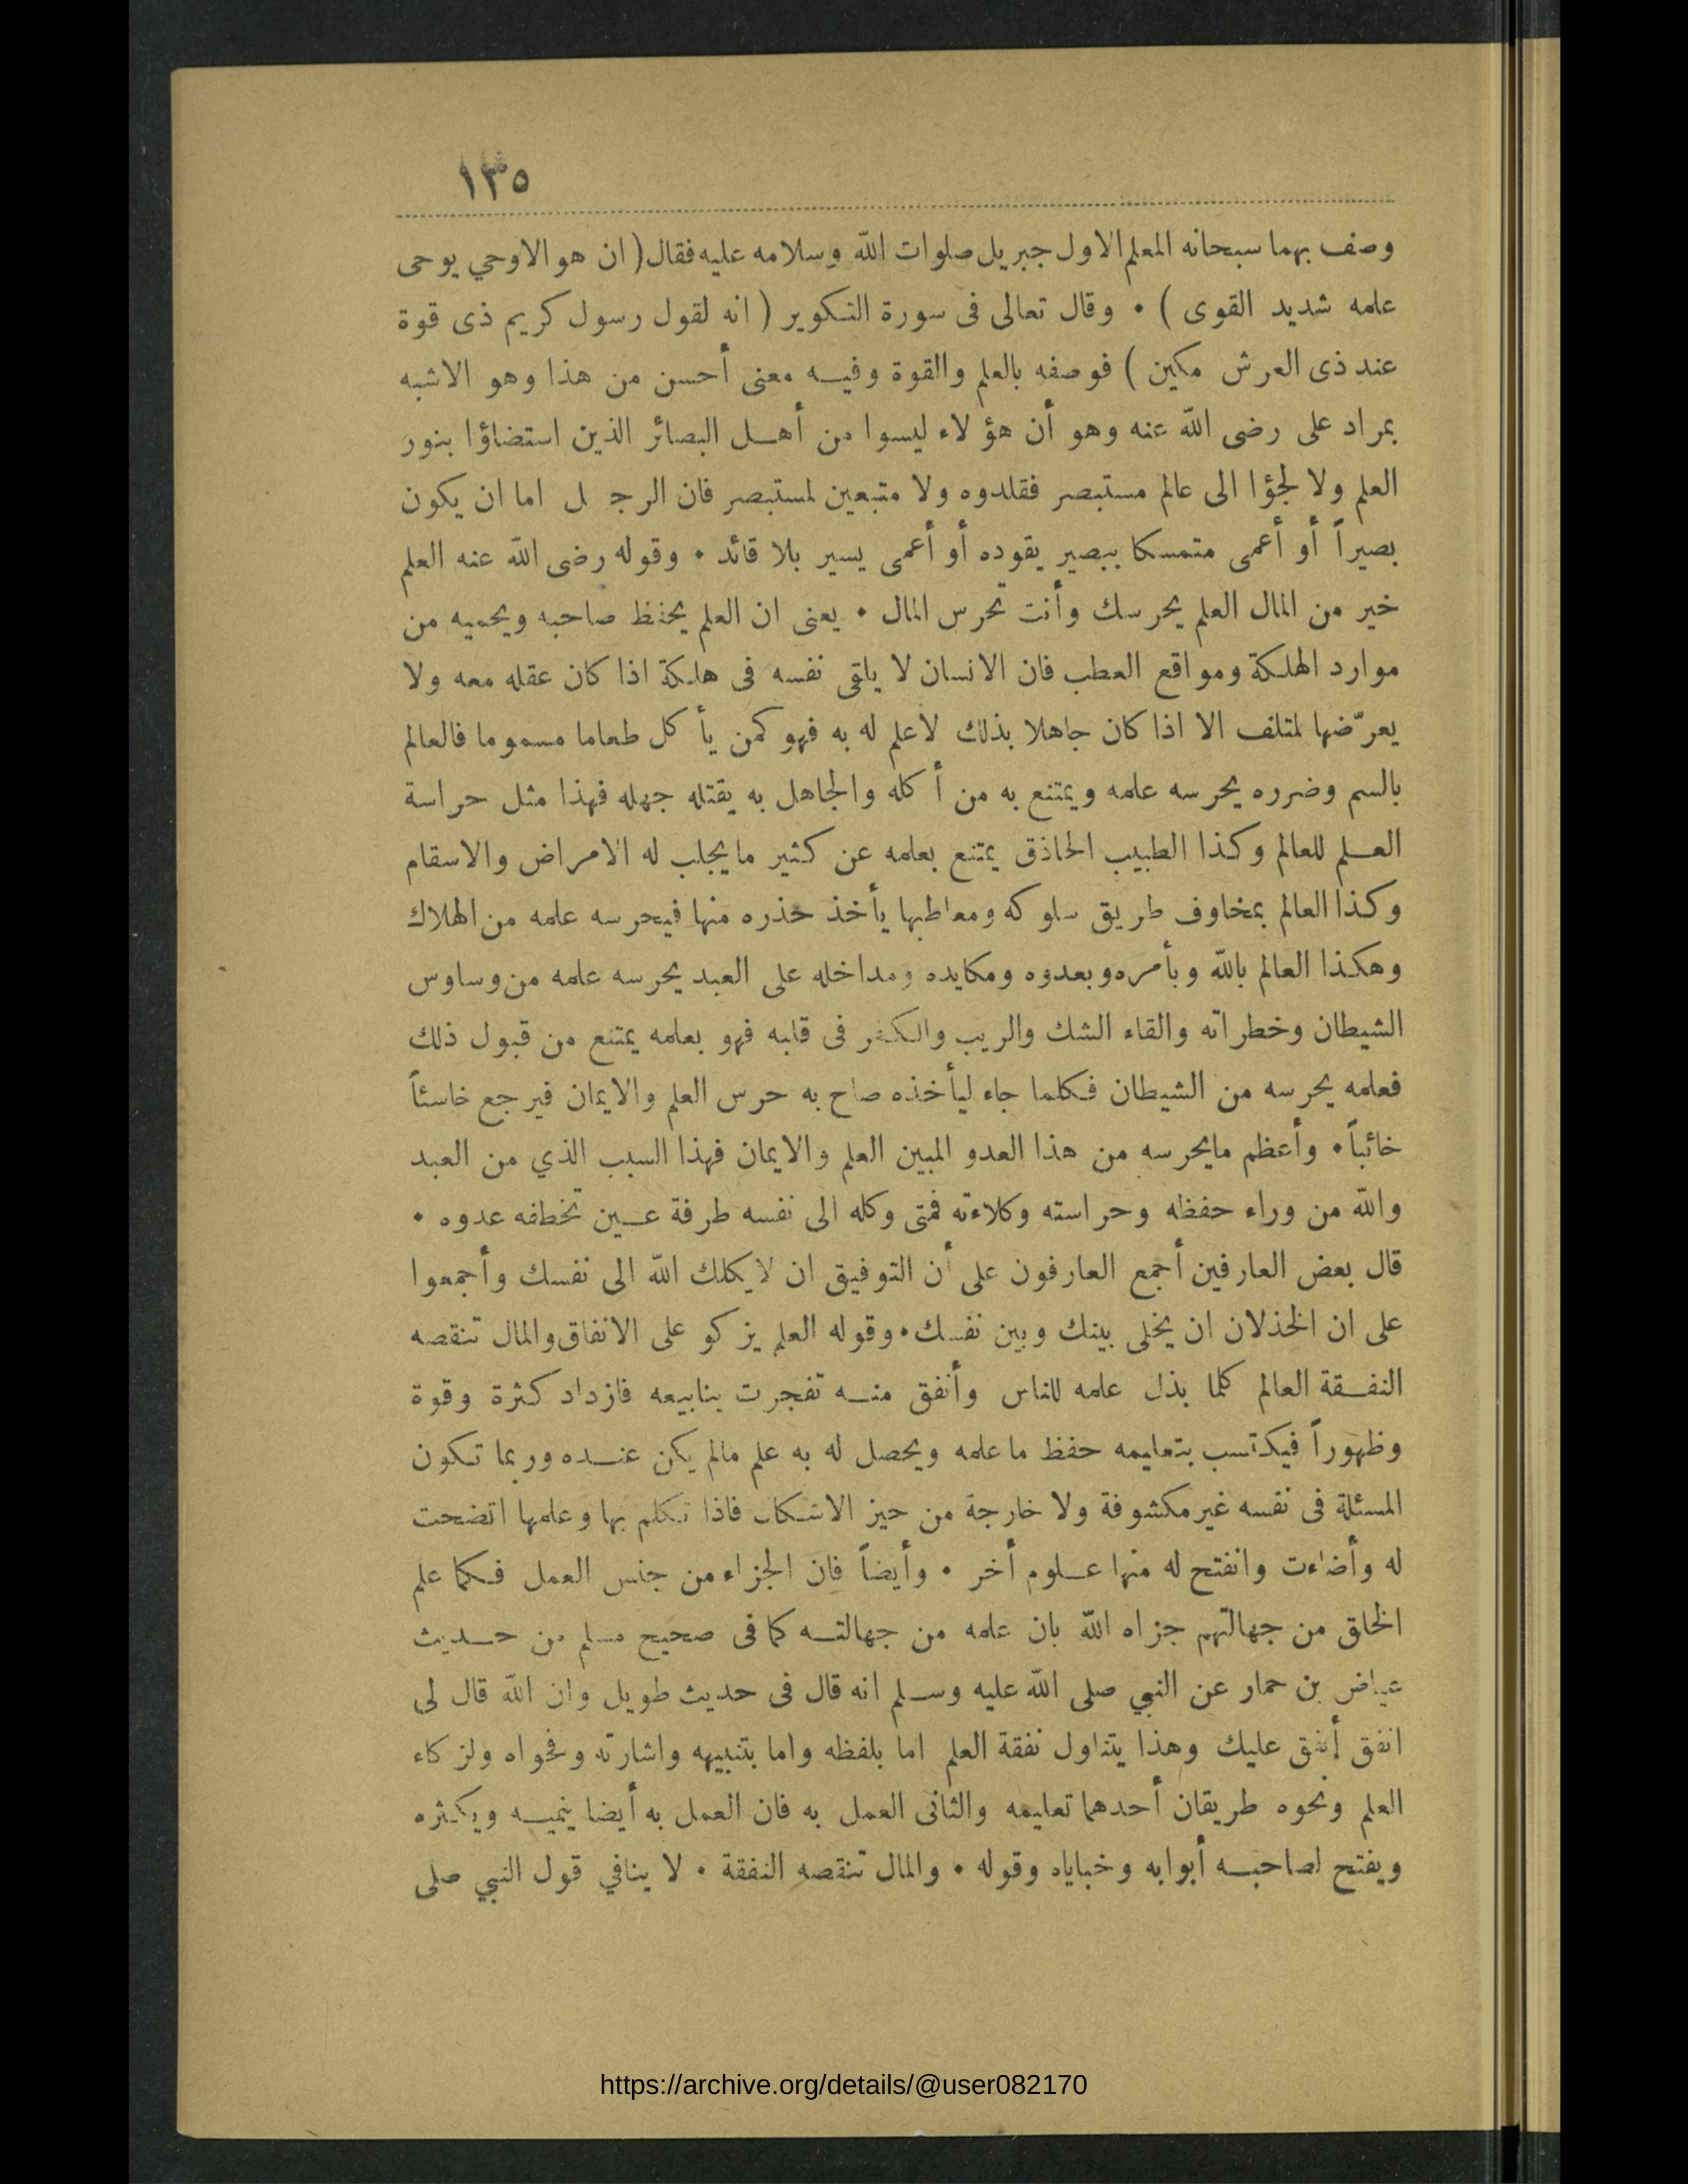 ١٣٥
وصف بهما سبحانه المعلم الاول جبريل صلوات الله وسلامه عليه فقال ( ان هو الاوحي يوحى
علمه شديد القوى ) • وقال تعالى فى سورة التكوير ( انه لقول رسول كريم ذى قوة
عند ذى العرش مكين ) فوصفه بالعلم والقوة وفيه معنى أحسن من هذا وهو الاشبه
بمراد على رضى الله عنه وهو أن هؤلاء ليسوا من أهل البصائر الذين استضاؤا بنور
العلم ولا لجؤا الى عالم مستبصر فقلدوه ولا متبعين لمستبصر فان الرجل اما ان يكون
بصيراً أو أعمى متمسكا ببصير يقوده أو أعمى يسير بلا قائد • وقوله رضى الله عنه العلم
خير من المال العلم يحرسك وأنت تحرس المال • يعنى ان العلم يحفظ صاحبه ويحميه من
موارد الهلكة ومواقع العطب فان الانسان لا يلقى نفسه فى هلكة اذا كان عقله معه ولا
يعرّضها لمتلف الا اذا كان جاهلا بذلك لا علم له به فهو كمن يأكل طعاما مسموما فالعالم
بالسم وضرره يحرسه علمه ويمتنع به من أكله والجاهل به يقتله جهله فهذا مثل حراسة
العلم للعالم وكذا الطبيب الحاذق يمتنع بعلمه عن كثير ما يجلب له الامراض والاسقام
وكذا العالم بمخاوف طريق سلوكه ومعاطبها يأخذ حذره منها فيحرسه علمه من الهلاك
وهكذا العالم بالله وبأمره وبعدوه ومكايده ومداخله على العبد يحرسه علمه من وساوس
الشيطان وخطراته والقاء الشك والريب والكفر فى قلبه فهو بعلمه يمتنع من قبول ذلك
فعلمه يحرسه من الشيطان فكلما جاء ليأخذه صاح به حرس العلم والايمان فيرجع خاسئاً
خائباً • وأعظم مايحرسه من هذا العدو المبين العلم والايمان فهذا السبب الذي من العبد
والله من وراء حفظه وحراسته وكلاءته فمتى وكله الى نفسه طرفة عين تخطفه عدوه •
قال بعض العارفين أجمع العارفون على أن التوفيق ان لا يكلك الله الى نفسك وأجمعوا
على ان الخذلان ان يخلى بينك وبين نفسك • وقوله العلم يزكو على الانفاق والمال تنقصه
النفقة العالم كلما بذل علمه للناس وأنفق منه تفجرت ينابيعه فازداد كثرة وقوة
وظهوراً فيكتسب بتعليمه حفظ ما علمه ويحصل له به علم مالم يكن عنده وربما تكون
المسئلة فى نفسه غير مكشوفة ولا خارجة من حيز الاشكال فاذا تكلم بها وعلمها اتضحت
له وأضاءت وانفتح له منها علوم أخر • وأيضاً فان الجزاء من جنس العمل فكما علم
الخلق من جهالتهم جزاه الله بان علمه من جهالته كما فى صحيح مسلم من حديث
عياض بن حمار عن النبي صلى الله عليه وسلم انه قال فى حديث طويل وان الله قال لى
انفق أنفق عليك وهذا يتناول نفقة العلم اما بلفظه واما بتنبيهه واشارته وفحواه ولزكاء
العلم ونحوه طريقان أحدهما تعليمه والثانى العمل به فان العمل به أيضا ينميه ويكثره
ويفتح لصاحبه أبوابه وخباياه وقوله • والمال تنقصه النفقة • لا ينافي قول النبي صلى
https://archive.org/details/@user082170